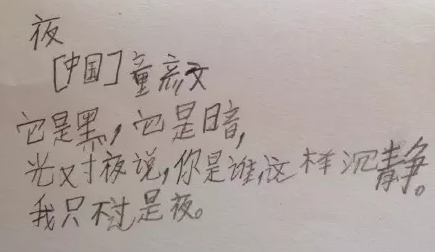 夜
[中国]童彦文
它是黑,它是暗,
光对夜说,你是谁,这样沉静。
我只不过是夜。